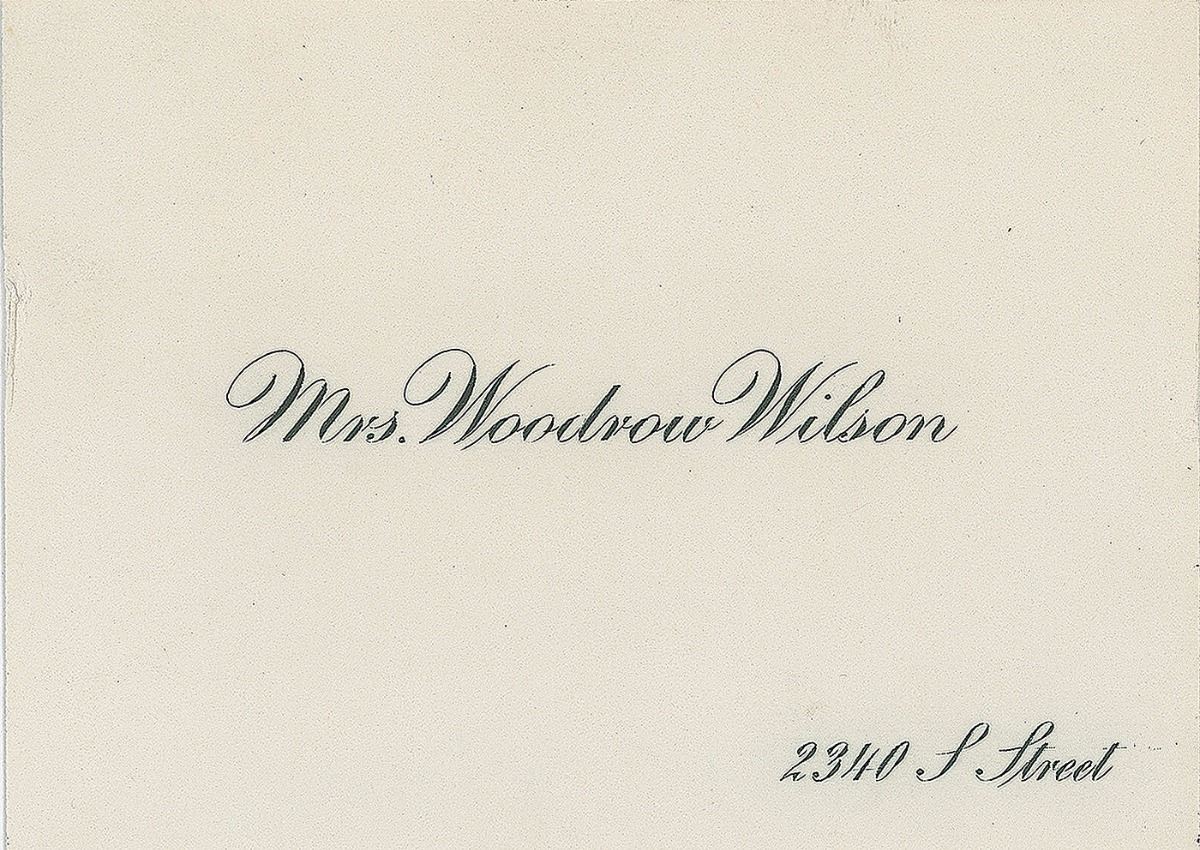 Mrs. Woodrow Wilson
2340 S Street